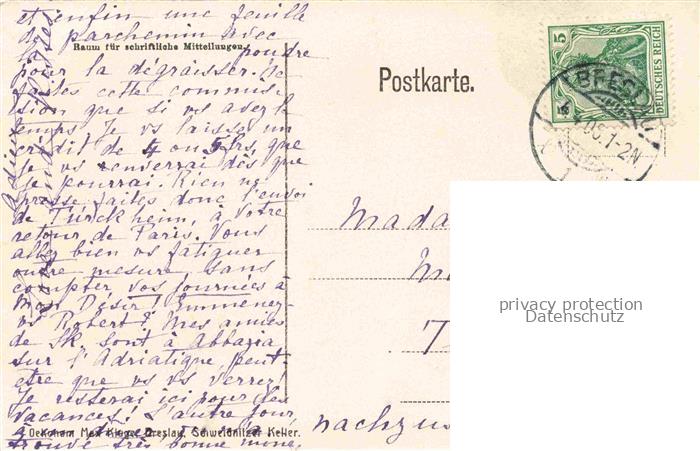 et enfin une feuille
de parchemin avec
Raum für schriftliche Mitteilungen.
poudre
pour la dégraisser. Si
faites cette commis-
sion que si vs avez le
temps. Je vs laisse un
crédit de 4 ou 5 frs, que
je vs renverrai dès que
je pourrai. Rien ne
presse, faites donc l'envoi
de Türckheim, à votre
retour de Paris. Vous
allez bien vs fatiguer
outre mesure, sans
compter vos journées à
Mon Désir! Emmenez-
vs Robert? Mes amies
de Sk. sont à Abbazia
sur l'Adriatique, peut-
être que vs vs verrez!
Je resterai ici pour les
vacances! L'autre jour,
Oekonom Max Kluge, Breslau, Schweidnitzer Keller.
trouvé très bonne mine,
Postkarte.
5
DEUTSCHES REICH
BRESL
1-2N
Mada
nachzu
privacy protection
Datenschutz